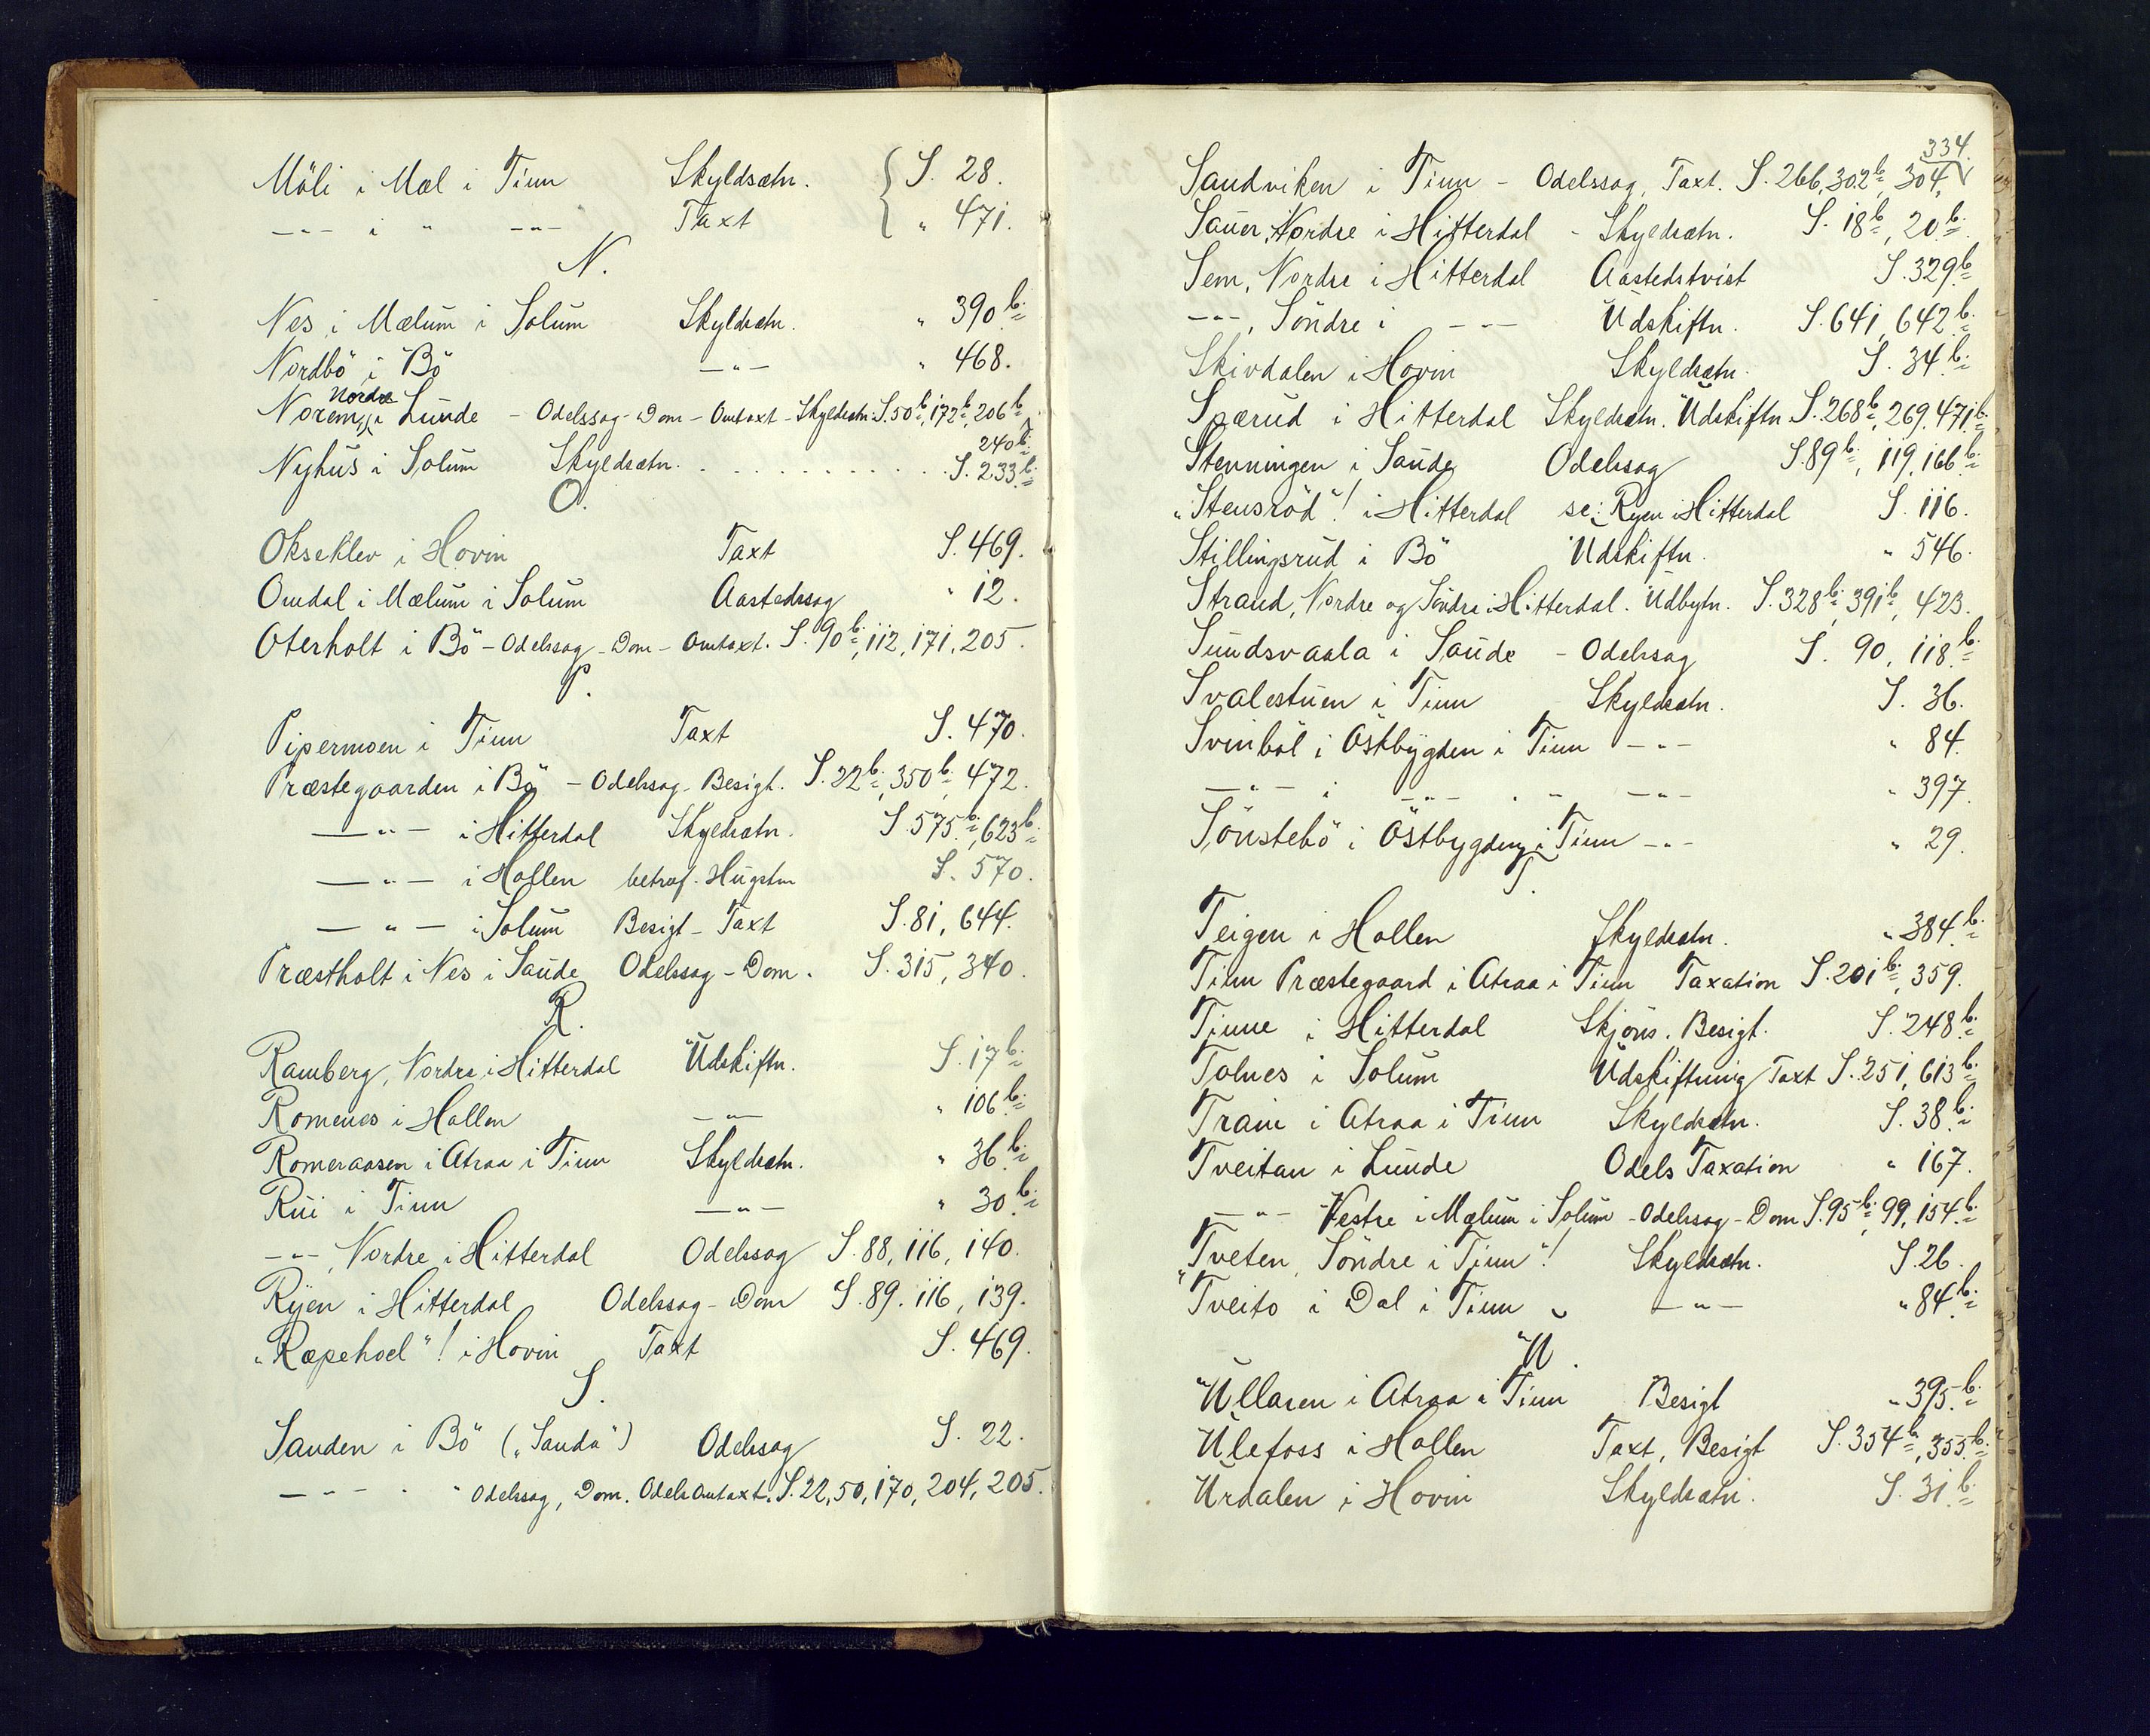 Möli i Mæl i Tinn Skyldsætn. { S. 28.
-"- i " -"- Taxt " 471.
N.
Nes i Mælum i Solum Skyldsætn. " 390 b.
Nordbö i Bö -"- " 468.
Norem, Nordre i Lunde - Odelssag - Dom - Omtaxt - Skyldsætn. S. 50 b, 172 b, 206 b,
240 b.
Nyhus i Solum Skyldsætn. . . . . . . . . . S. 233 b.
O.
Okseklev i Hovin Taxt S. 469.
Omdal i Mælum i Solum Aastedssag " 12.
Oterholt i Bö - Odelssag - Dom - Omtaxt. S. 90 b, 112, 171, 205.
P.
Pipermoen i Tinn Taxt S. 470.
Præstegaarden i Bö - Odelssag - Besigt. S. 22 b, 350 b, 472.
-"- i Hitterdal Skyldsætn. S. 575 b, 623 b.
-"- i Hollen betræf. Hugstn S. 570.
-"- i Solum Besigt - Taxt S. 81, 644.
Præstholt i Nes i Saude Odelssag - Dom. S. 315, 340.
R.
Ramberg, Nordre i Hitterdal Udskiftn. S. 17 b.
Romenes i Hollen -"- " 106 b.
Romeraasen i Atraa i Tinn Skyldsætn. " 36 b.
Rui i Tinn -"- " 30 b.
-"-, Nordre i Hitterdal Odelssag S. 88, 116, 140.
Ryen i Hitterdal Odelssag - Dom S. 89. 116, 139.
„Ræpehoel"! i Hovin Taxt S. 469.
S.
Sanden i Bö („Sanda") Odelssag S. 22.
-"- " " Odelssag, Dom. Odels Omtaxt. S. 22, 50, 170, 204, 205.
334.
Sandviken i Tinn - Odelssag, Taxt. S. 266, 302 b, 304,
Sauer, Nordre i Hitterdal - Skyldsætn. S. 18 b, 20 b.
Sem, Nordre i Hitterdal Aastedstvist S. 329 b.
-"-, Söndre i -"- Udskiftn. S. 641, 642 b.
Skivdalen i Hovin Skyldsætn. S. 34 b.
Spærud i Hitterdal Skyldsætn. Udskiftn S. 268 b, 269. 471 b.
Stenningen i Saude Odelssag S. 89 b, 119, 166 b.
„Stensröd"! i Hitterdal se: Ryen i Hitterdal S. 116.
Stillingsrud i Bö Udskiftn. " 546.
Strand, Nordre og Söndre i Hitterdal. Udbytn. S. 328 b, 391 b, 423.
Sundsvaala i Saude - Odelssag S. 90, 118 b.
Svalestuen i Tinn Skyldsætn. S. 36.
Svinböl i Östbygden i Tinn -"- " 84.
-"- i -"- " " -"- " 397.
Sönstebö i Östbygden i Tinn -"- " 29.
T.
Teigen i Hollen Skyldsætn. " 384 b.
Tinn Præstegaard i Atraa i Tinn Taxation S. 201 b, 359.
Tinne i Hitterdal Skjöns. Besigt. S. 248 b.
Tolnes i Solum Udskiftning Taxt S. 251, 613 b.
Traen i Atraa i Tinn Skyldsætn. S. 38 b.
Tveitan i Lunde Odels Taxation " 167.
-"- Vestre i Mælum i Solum - Odelssag - Dom S. 95 b, 99, 154 b.
„Tveten, Söndre i Tinn"! Skyldsætn. S. 26.
Tveito i Dal i Tinn -"- " 84 b.
U.
Ullaren i Atraa i Tinn Besigt " 395 b.
Ulefoss i Hollen Taxt, Besigt S. 354 b, 355 b.
Urdalen i Hovin Skyldsætn. S. 31 b.